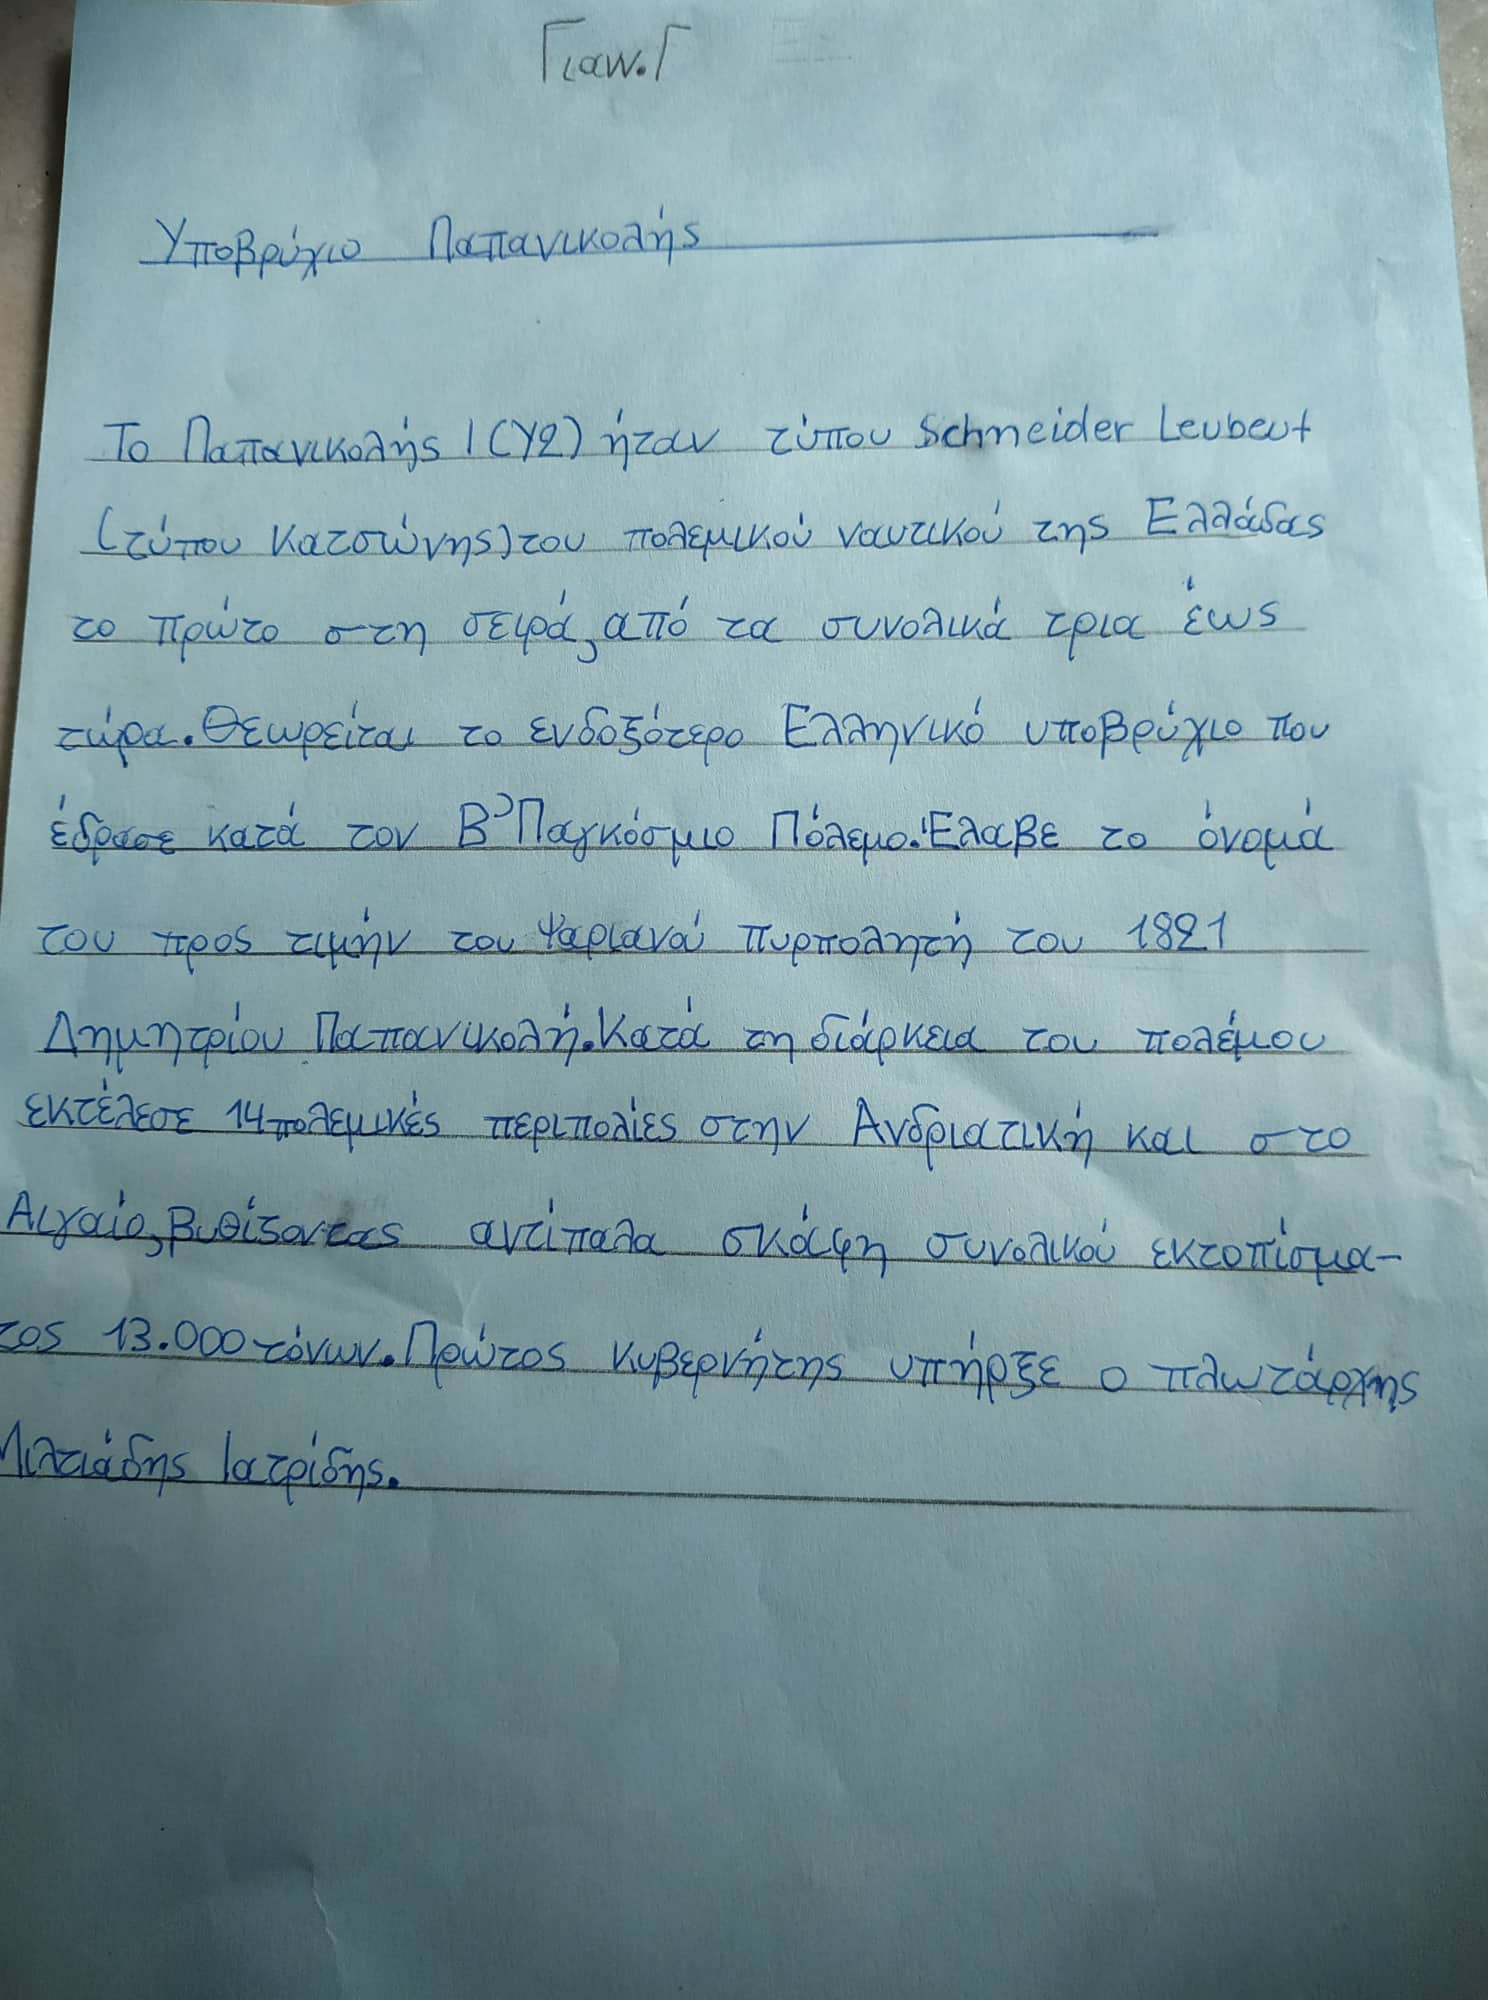 Γιαν.Γ
Υποβρύχιο Παπανικολής
Το Παπανικολής Ι (Υ2) ήταν τύπου Schneider Leubeut
(τύπου Κατσώνης) του πολεμικού ναυτικού της Ελλάδας
το πρώτο στη σειρά, από τα συνολικά τρια έως
τώρα. Θεωρείται το ενδοξότερο Ελληνικό υποβρύχιο που
έδρασε κατά τον Β' Παγκόσμιο Πόλεμο. Έλαβε το όνομά
του προς τιμήν του Ψαριανού πυρπολητή του 1821
Δημητρίου Παπανικολή. Κατά τη διάρκεια του πολέμου
εκτέλεσε 14 πολεμικές περιπολίες στην Ανδριατική και στο
Αιγαίο, βυθίζοντας αντίπαλα σκάφη συνολικού εκτοπίσμα-
τος 13.000 τόνων. Πρώτος κυβερνήτης υπήρξε ο πλωτάρχης
Μιλτιάδης Ιατρίδης.